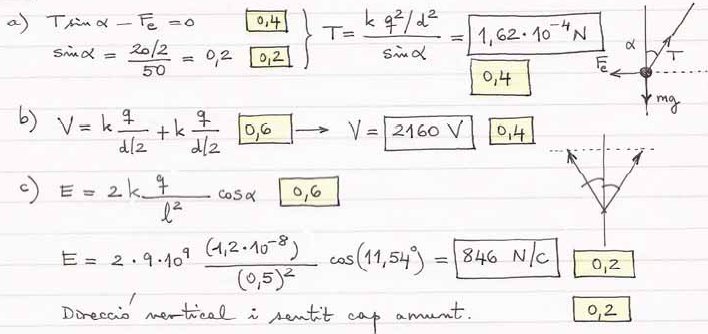 a) T sin α − Fe = 0 0,4
sin α = (20/2)/50 = 0,2 0,2 } T = (k q²/d²)/(sin α) = 1,62·10⁻⁴ N
0,4
α T Fe mg
b) V = k q/(d/2) + k q/(d/2) 0,6 → V = 2160 V 0,4
c) E = 2 k q/l² cos α 0,6
E = 2·9·10⁹ (1,2·10⁻⁸)/(0,5)² cos(11,54°) = 846 N/C 0,2
Direcció vertical i sentit cap amunt. 0,2